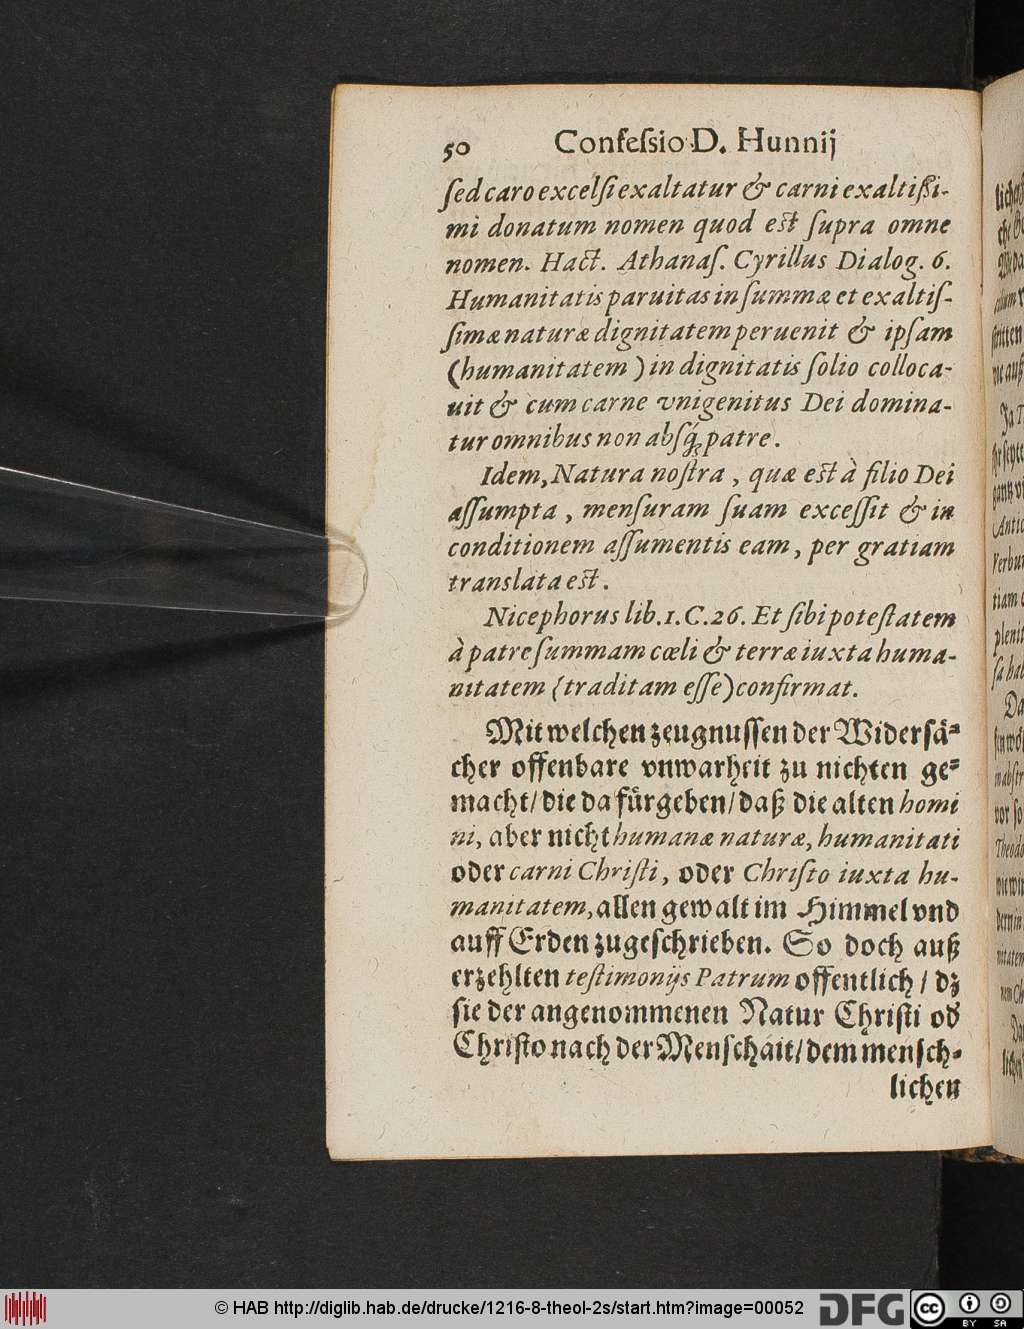 50 Confeſsio D. Hunnij
ſed caro excelſi exaltatur & carni exaltißi-
mi donatum nomen quod est ſupra omne
nomen. Hact. Athanaſ. Cyrillus Dialog. 6.
Humanitatis paruitas in ſummæ et exaltiſ-
ſimæ naturæ dignitatem peruenit & ipſam
(humanitatem) in dignitatis ſolio colloca-
uit & cum carne vnigenitus Dei domina-
tur omnibus non abſq́; patre.
Idem, Natura noſtra, quæ est à filio Dei
aſſumpta, menſuram ſuam exceſſit & in
conditionem aſſumentis eam, per gratiam
translata est.
Nicephorus lib.1.C.26. Et ſibi poteſtatem
à patre ſummam cœli & terræ iuxta huma-
nitatem (traditam eſſe) confirmat.
Mit welchen zeugnuſſen der Widerſaͤ-
cher offenbare vnwarheit zu nichten ge-
macht/ die da fuͤrgeben/ daß die alten homi
ni, aber nicht humanæ naturæ, humanitati
oder carni Chriſti, oder Chriſto iuxta hu-
manitatem, allen gewalt im Himmel vnd
auff Erden zugeſchrieben. So doch auß
erzehlten teſtimonijs Patrum offentlich / dz
ſie der angenommenen Natur Chriſti od
Chriſto nach der Menſchait/ dem menſch-
lichen
© HAB http://diglib.hab.de/drucke/1216-8-theol-2s/start.htm?image=00052
DFG
cc
BY SA